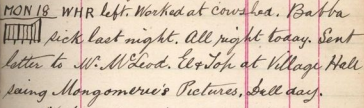 MON 18 WHR left. Worked at cowshed. Babba
sick last night. All right today. Sent
letter to Mr. McLeod. El & Top at Village Hall
seeing Mongomerie's Pictures. Dull day.